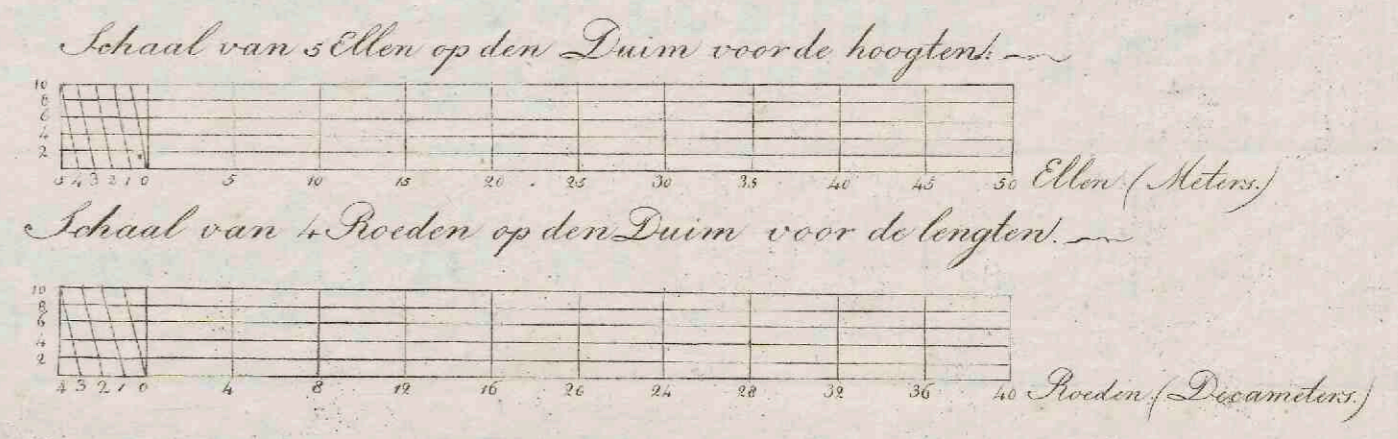 Schaal van 5 Ellen op den Duim voor de hoogten.
10
8
6
4
2
5 4 3 2 1 0 5 10 15 20 25 30 35 40 45 50 Ellen (Meters.)
Schaal van 4 Roeden op den Duim voor de lengten.
10
8
6
4
2
4 3 2 1 0 4 8 12 16 26 24 28 32 36 40 Roeden (Decameters.)